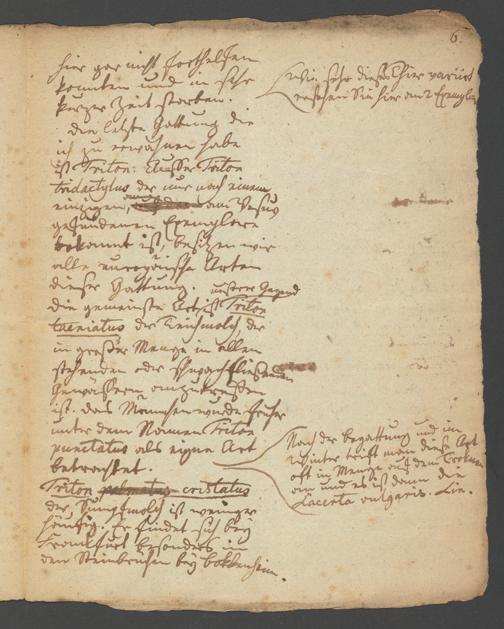 6.
hier gar nicht forthelfen
konnten und in sehr
kurzer Zeit starben.
die letzte Gattung die
ich zu erwähnen habe
ist Triton: Ausser Triton
tridactylus der nur nach einem
einzigen, am Vesuv
gefundenen Exemplare
bekannt ist, besitzen wir
alle europäische Arten
dieser Gattung. unserer Gegend
die gemeinste Art ist Triton
taeniatus der Teichmolch, der
in großer Menge in allen
stehenden oder schwachfließenden
Gewässern anzutreffen
ist. das Männchen wurde früher
unter dem Namen Triton
punctatus als eigne Art
betrachtet.
Triton palmatus cristatus
der Sumpfmolch ist weniger
häufig. Er findet sich bey
Frankfurt besonders in
den Steinbrüchen bey Bockenheim.
Wie sehr dieses Thier variirt
ersehen Sie hier an 2 Exemplaren
Nach der Begattung und im
Winter trift man diese Art
oft in Menge auf dem Trocknen
an und es ist dann die
Lacerta vulgaris. Lin.